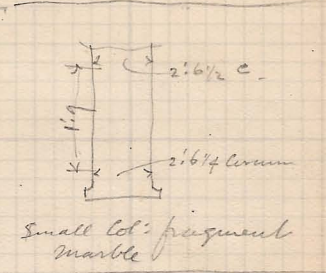 2'.6½ C
1'.9
2'.6¼ Circum
Small Col: fragment
marble